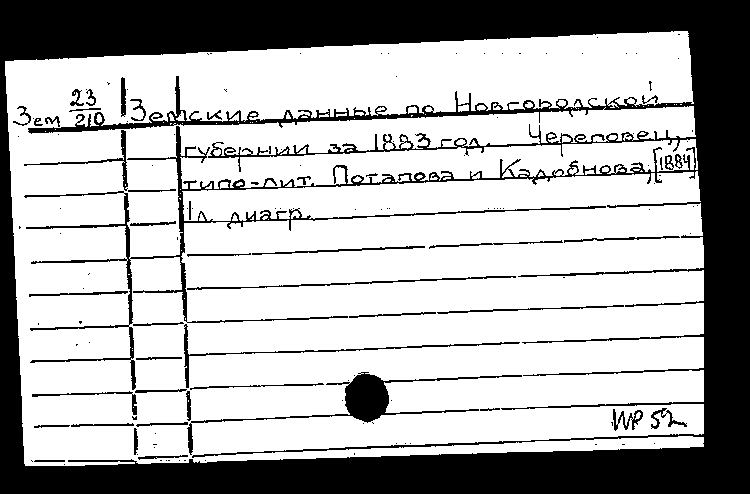 Зем 23/210 Земские данные по Новгородской
губернии за 1883 год. Череповец,
типо-лит. Потапова и Кадобнова, [1884]
1 л. диагр.